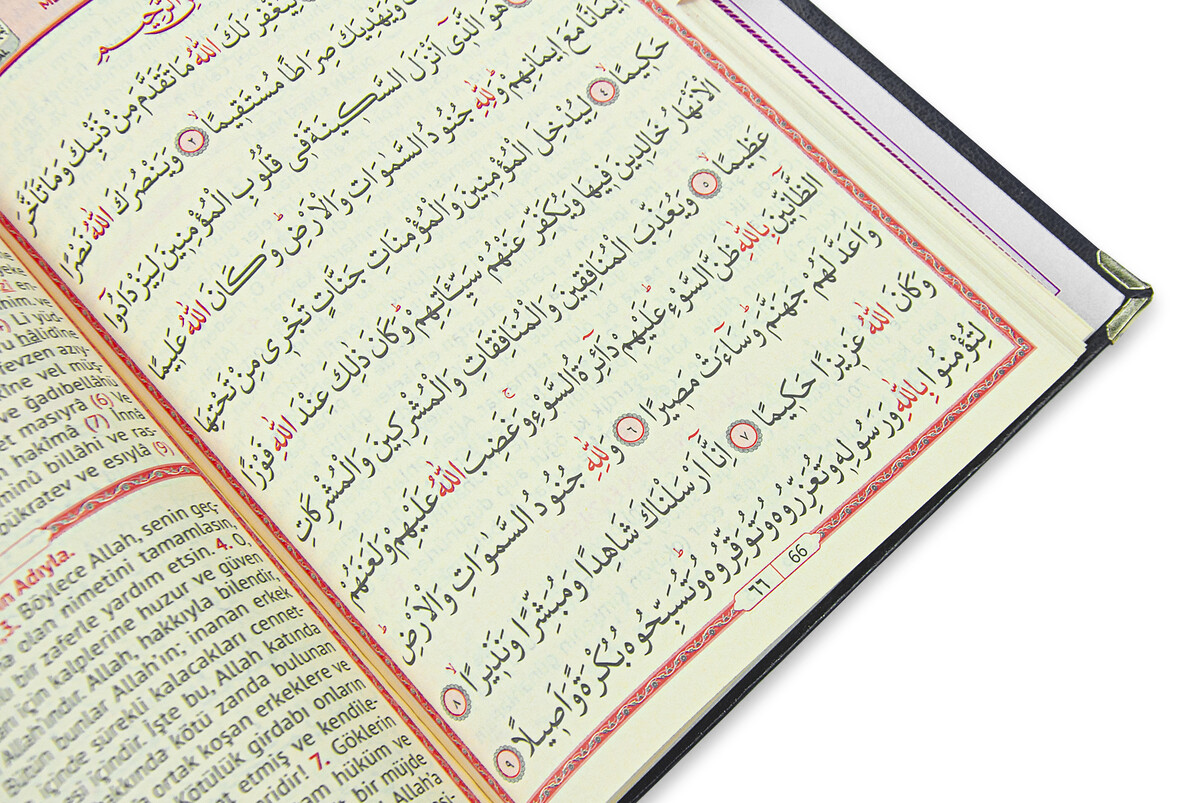 الرَّحِيمِ
لِيَغْفِرَ لَكَ اللّٰهُ مَا تَقَدَّمَ مِنْ ذَنْبِكَ وَمَا تَاَخَّرَ
وَيَهْدِيَكَ صِرَاطًا مُسْتَقِيمًا ٢ وَيَنْصُرَكَ اللّٰهُ نَصْرًا
هُوَ الَّذٖٓى اَنْزَلَ السَّكٖينَةَ فٖى قُلُوبِ الْمُؤْمِنٖينَ لِيَزْدَادُٓوا
اٖيمَانًا مَعَ اٖيمَانِهِمْ وَلِلّٰهِ جُنُودُ السَّمٰوَاتِ وَالْاَرْضِ وَكَانَ اللّٰهُ عَلٖيمًا
حَكٖيمًا ٤ لِيُدْخِلَ الْمُؤْمِنٖينَ وَالْمُؤْمِنَاتِ جَنَّاتٍ تَجْرٖى مِنْ تَحْتِهَا
الْاَنْهَارُ خَالِدٖينَ فٖيهَا وَيُكَفِّرَ عَنْهُمْ سَيِّـَٔاتِهِمْ وَكَانَ ذٰلِكَ عِنْدَ اللّٰهِ فَوْزًا
عَظٖيمًا ٥ وَيُعَذِّبَ الْمُنَافِقٖينَ وَالْمُنَافِقَاتِ وَالْمُشْرِكٖينَ وَالْمُشْرِكَاتِ
الظَّٓانّٖينَ بِاللّٰهِ ظَنَّ السَّوْءِ عَلَيْهِمْ دَٓائِرَةُ السَّوْءِ وَغَضِبَ اللّٰهُ عَلَيْهِمْ وَلَعَنَهُمْ
وَاَعَدَّ لَهُمْ جَهَنَّمَ وَسَٓاءَتْ مَصٖيرًا ٦ وَلِلّٰهِ جُنُودُ السَّمٰوَاتِ وَالْاَرْضِ
وَكَانَ اللّٰهُ عَزٖيزًا حَكٖيمًا ٧ اِنَّٓا اَرْسَلْنَاكَ شَاهِدًا وَمُبَشِّرًا وَنَذٖيرًا ٨
لِتُؤْمِنُوا بِاللّٰهِ وَرَسُولِهٖ وَتُعَزِّرُوهُ وَتُوَقِّرُوهُ وَتُسَبِّحُوهُ بُكْرَةً وَاَصٖيلًا ٩
٦٦ 66
en-
him. ve
Li yüd
hâlidîne
fevzen azıy-
kîne vel müş-
ve ğadıbellâhü
et masıyrâ (6) Ve
hakîmâ (7) İnnâ
minû billâhi ve ras-
bükratev ve esıylâ (9)
Adıyla.
3. Böylece Allah, senin geç-
olan nimetini tamamlasın,
bir zaferle yardım etsin. 4. O,
için kalplerine huzur ve güven
Allah'ındır. Allah, hakkıyla bilendir,
Bütün bunlar Allah'ın; inanan erkek
içinde sürekli kalacakları cennet-
içindir. İşte bu, Allah katında
hakkında kötü zanda bulunan
ortak koşan erkeklere ve
Kötülük girdabı onların
etmiş ve kendile-
7. Göklerin
hüküm ve
bir müjde
Allah'a